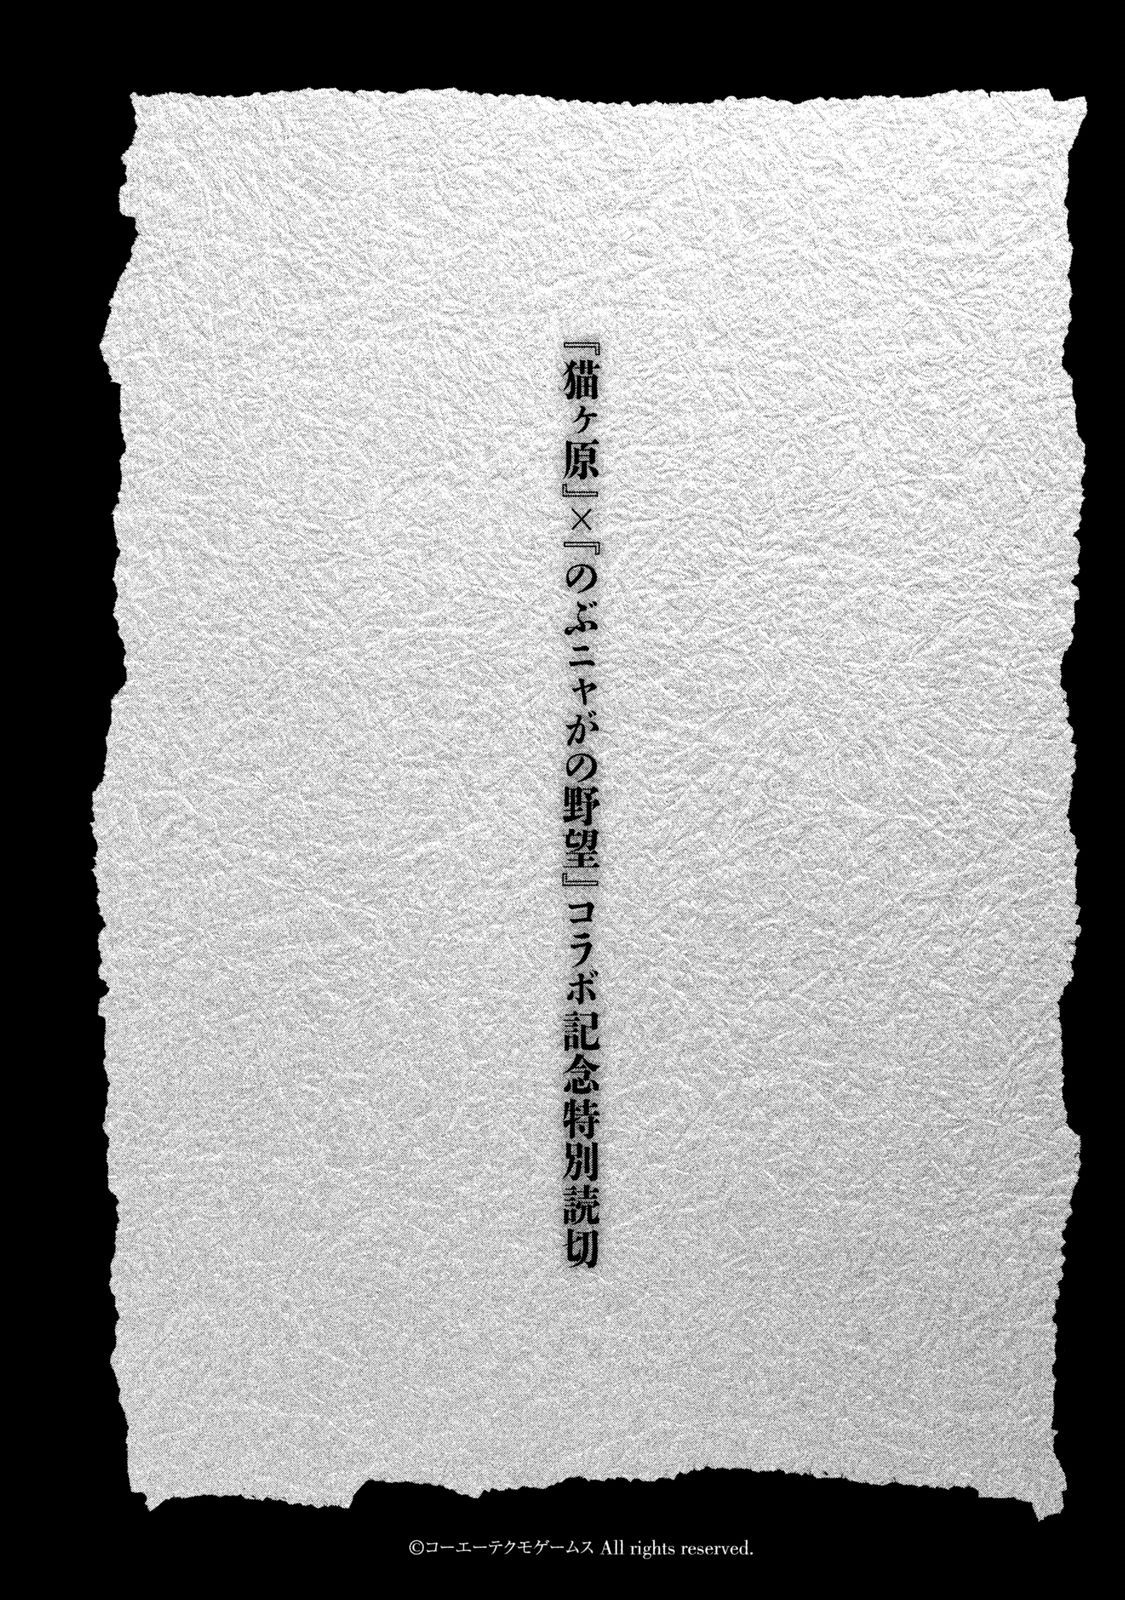 『猫ヶ原』×『のぶニャがの野望』コラボ記念特別読切
©コーエーテクモゲームス All rights reserved.